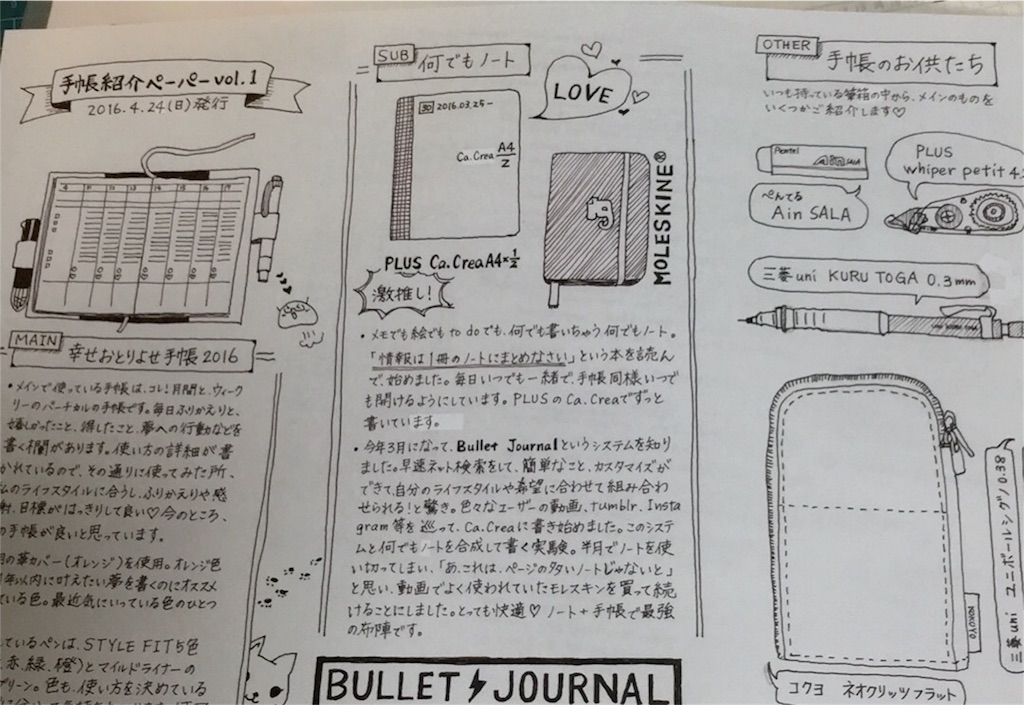 手帳紹介ペーパーvol.1
2016.4.24(日)発行
MAIN
幸せおとりよせ手帳2016
・メインで使っている手帳は、コレ!月間と、ウィーク
リーのバーチカルの手帳です。毎日ふりかえりと、
嬉しかったこと、得したこと、夢への行動などを
書く欄があります。使い方の詳細が書
かれているので、その通りに使ってみた所、
私のライフスタイルに合うし、ふりかえりや感
謝、目標がはっきりして良い♡今のところ、
の手帳が良いと思っています。
の革カバー(オレンジ)を使用。オレンジ色
年以内に叶えたい夢を書くのにオススメ
ている色。最近気にいっている色のひとつ
ているペンは、STYLE FIT5色
赤、緑、橙)とマイルドライナーの
グリーン。色も、使い方を決めている
SUB
何でもノート
LOVE
30 2016.03.25-
Ca.Crea A4/2
MOLESKINE®
PLUS Ca.Crea A4×1/2
激推し!
・メモでも絵でもto doでも、何でも書いちゃう何でもノート。
「情報は1冊のノートにまとめなさい」という本を読ん
で、始めました。毎日いつでも一緒で、手帳同様いつで
も開けるようにしています。PLUSのCa.Creaでずっと
書いています。
・今年3月になって、Bullet Journalというシステムを知り
ました。早速ネット検索をして、簡単なこと、カスタマイズが
できて、自分のライフスタイルや希望に合わせて組み合わ
せられる!と驚き。色々なユーザーの動画、tumblr、Insta
gram等を巡って、Ca.Creaに書き始めました。このシステ
ムと何でもノートを合成して書く実験。半月でノートを使
い切ってしまい、「あ、これは、ページの多いノートじゃないと」
と思い、動画でよく使われていたモレスキンを買って続
けることにしました。とっても快適♡ ノート+手帳で最強
の布陣です。
BULLET JOURNAL
OTHER
手帳のお供たち
いつも持っている筆箱の中から、メインのものを
いくつかご紹介します♡
Pentel Ain SALA
ぺんてる
Ain SALA
PLUS
whiper petit 4
三菱uni KURU TOGA 0.3mm
三菱uni ユニボールシグノ0.38
KOKUYO
コクヨ ネオクリッツフラット